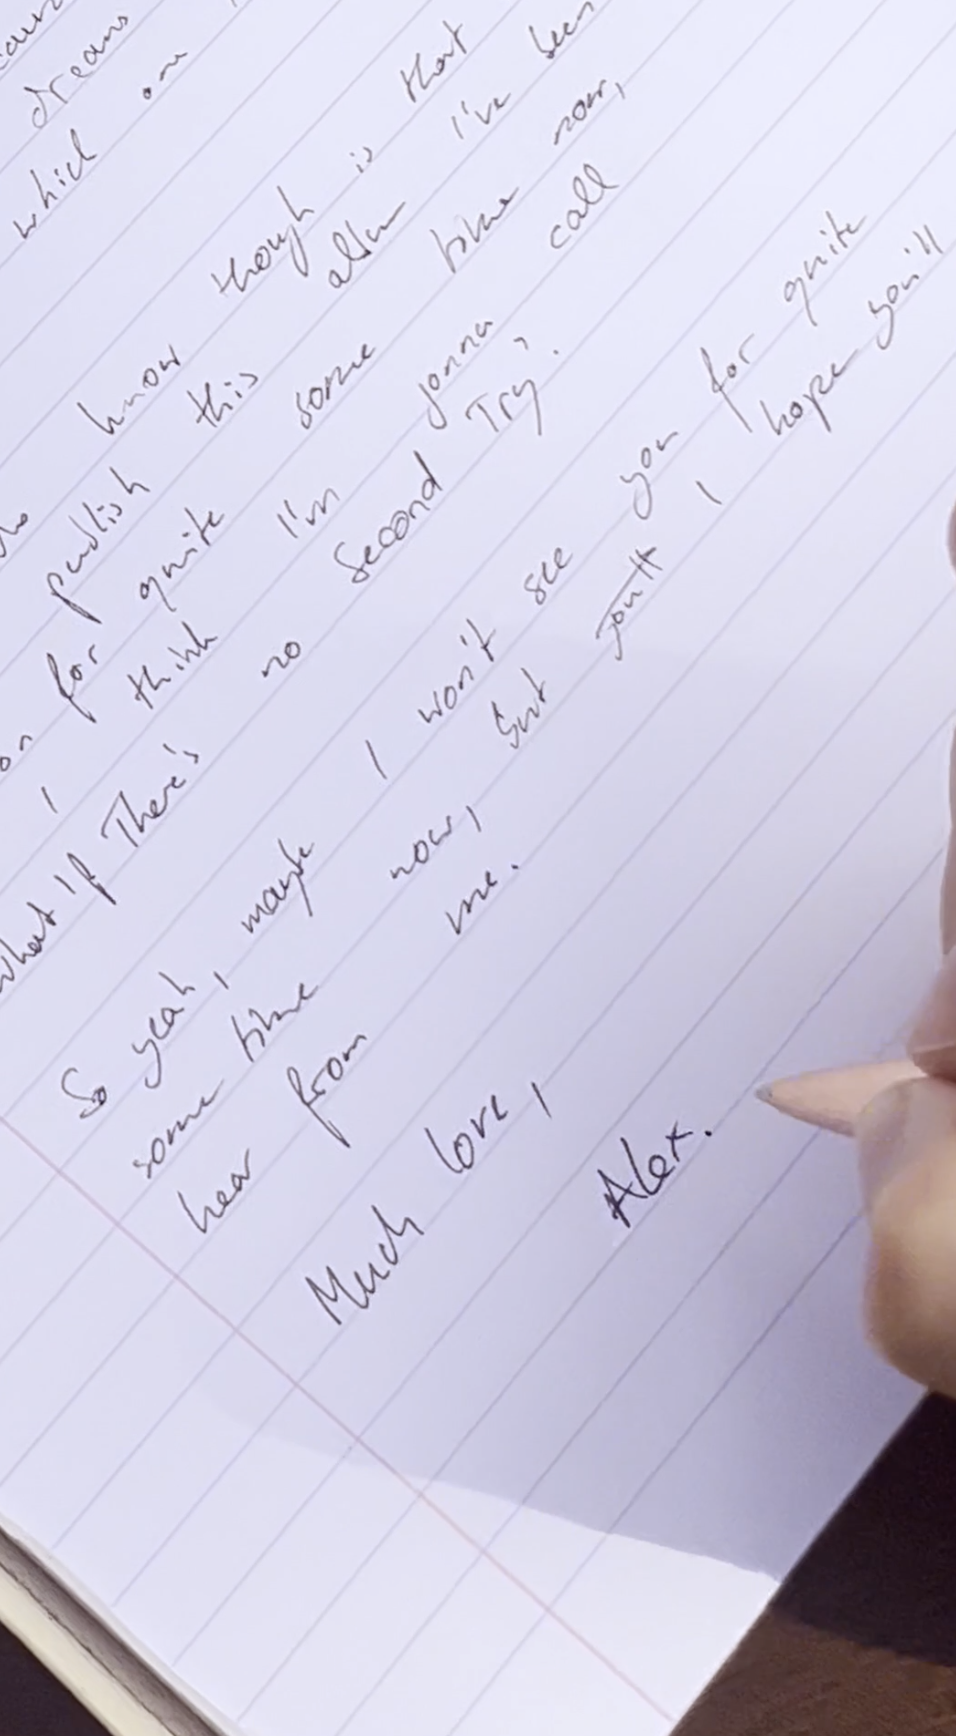 dreams
which one
know though is that
publish this album I've been
on for quite some time now,
I think I'm gonna call
What if There's no Second Try?
So yeah, maybe I won't see you for quite
some time now, but you'll I hope you'll
hear from me.
Much love,
Alex.